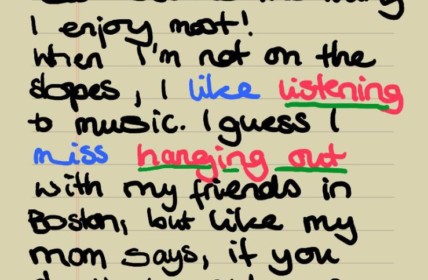 I enjoy most!
When I'm not on the
slopes, I like listening
to music. I guess I
miss hanging out
with my friends in
Boston, but like my
mom says, if you